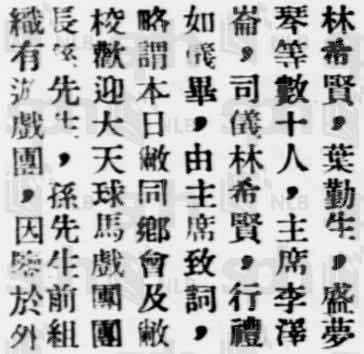 林希賢，葉勤生，盛夢
琴等數十人，主席李澤
崙，司儀林希賢，行禮
如儀畢，由主席致詞，
略謂本日敝同鄉會及敝
校歡迎大天球馬戲團團
長孫先生，孫先生前組
織有戲團，因鑒於外